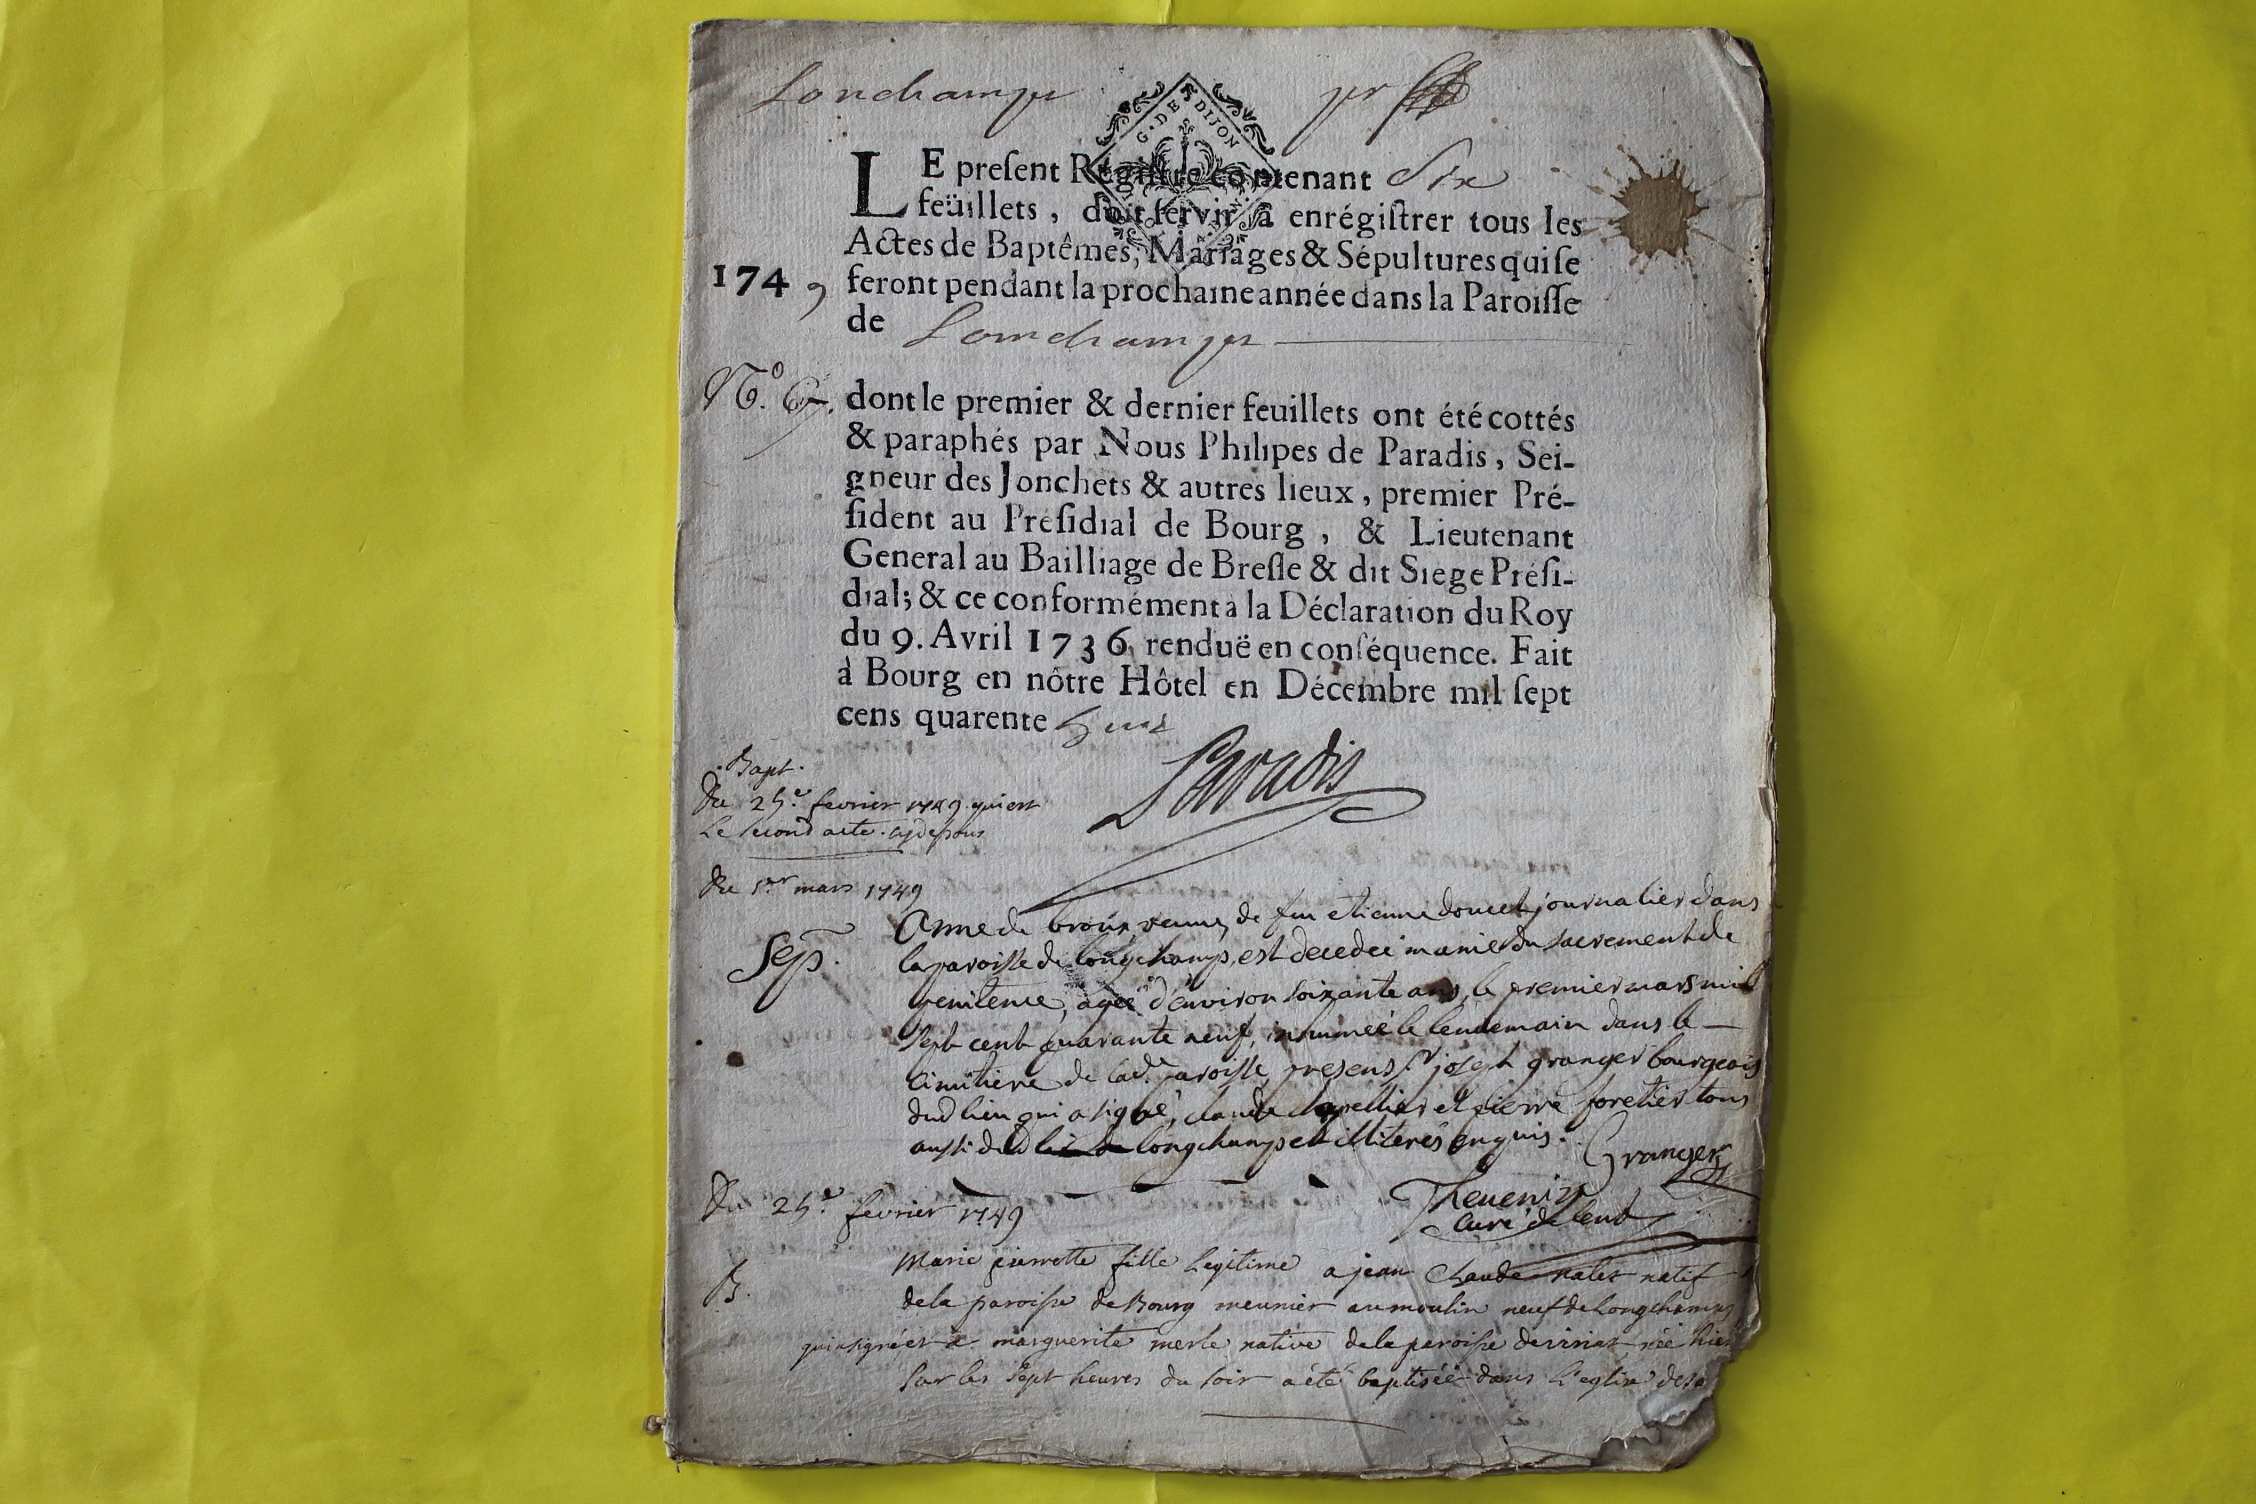 Lonchamps
G. DE DIJON
LE preſent Regiſtre contenant Six
feüillets, doit ſervir à enrégiſtrer tous les
Actes de Baptêmes, Mariages & Sépultures qui ſe
1749 feront pendant la prochaine année dans la Paroiſſe
de Lonchamps
N.º
dont le premier & dernier feuillets ont été cottés
& paraphés par Nous Philipes de Paradis, Sei-
gneur des Jonchets & autres lieux, premier Pré-
ſident au Préſidial de Bourg, & Lieutenant
General au Bailliage de Breſſe & dit Siege Préſi-
dial; & ce conformément à la Déclaration du Roy
du 9. Avril 1736 renduë en conſéquence. Fait
à Bourg en nôtre Hôtel en Décembre mil ſept
cens quarente huit
Paradis
Bapt.
Du 25.e fevrier 1749 qui est
Le second acte cy dessous
Du 1.er mars 1749
Anne de veuve de feu etienne doucet journalier dans
Sep. la paroisse de longchamps, est decedeé munie du sacrement de
penitence, ageé d'environ soixante ans, le premier mars mil
sept cent quarante neuf, inhumeé le lendemain dans le
cimitiere de lad.e paroisse, presens Sr joseph granger bourgeois
dud lieu qui a signé, claude et pierre foretier tous
aussi dud longchamps et illiterés enquis. Granger
Thevenin
curé de lent
Du 25.e fevrier 1749
B. Marie pierrette fille legitime a jean Claude natif
de la paroisse de Bourg meunier au moulin neuf de Longchamps
qui a signé et a marguerite merle native de la paroisse de viriat née hier
sur les sept heures du soir a été baptisée dans l'eglise de